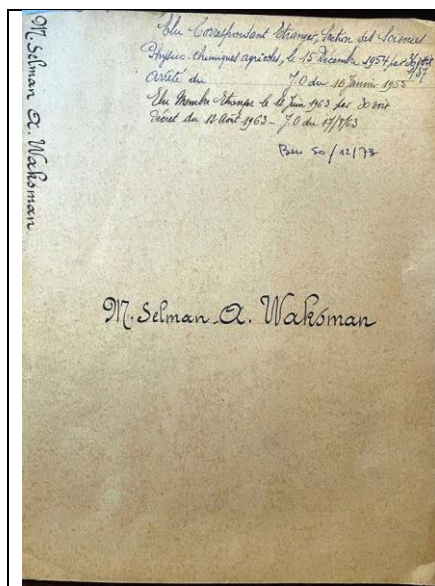 M. Selman A. Waksman
Elu Correspondant Etranger, Section des Sciences
Physico-chimiques agricoles, le 15 Décembre 1954 par 36 voix
/37
Arrêté du J.O du 16 Janvier 1955
Elu Membre Etranger le Juin 1963 par 30 voix
Décret du 12 Août 1963 - J.O du 17/8/63
M. Selman A. Waksman